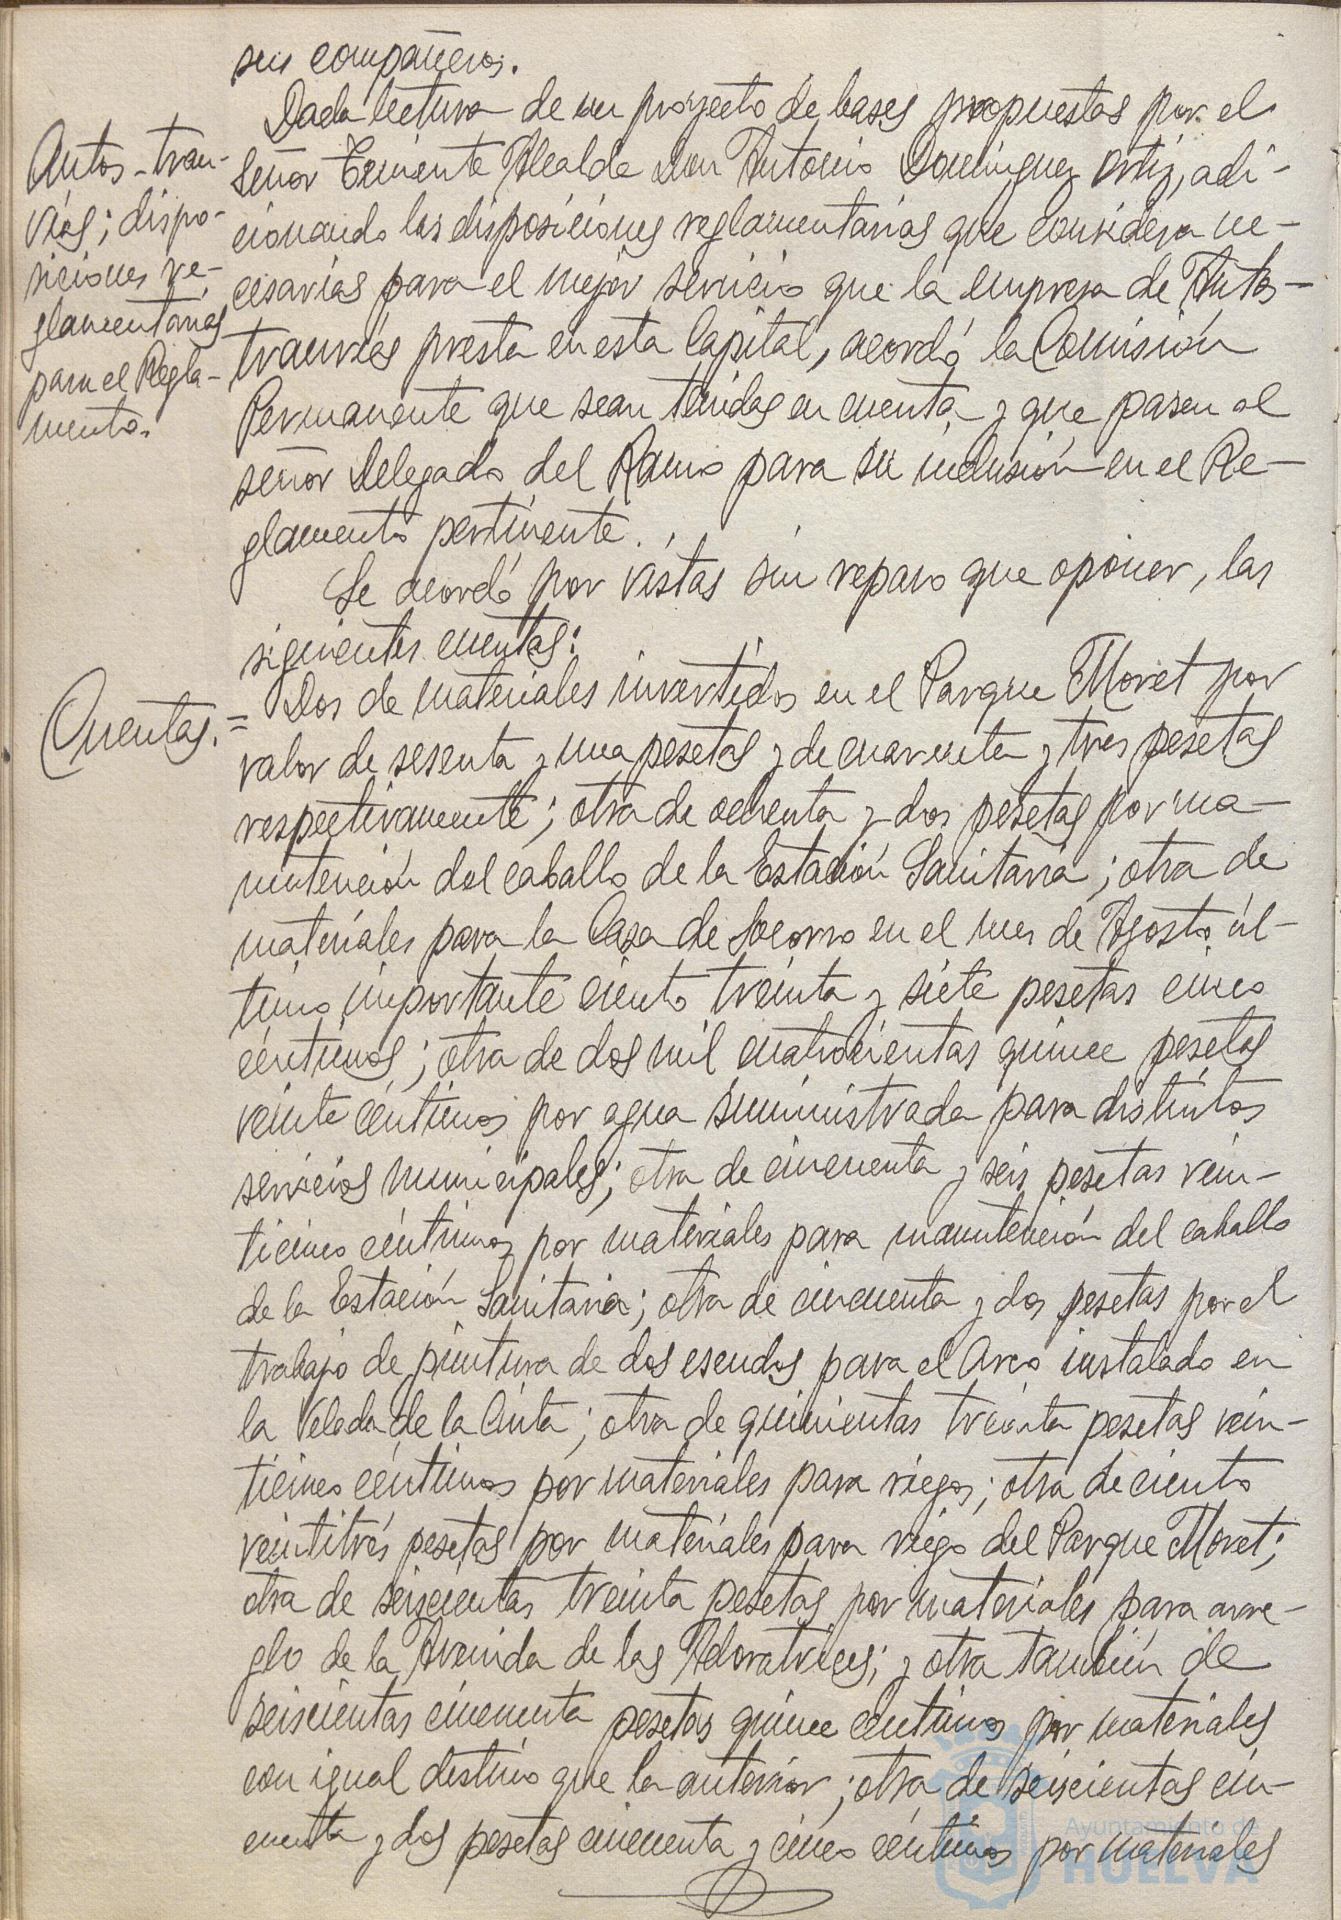 sus compañeros.
Dada lectura de un proyecto de bases propuestas por el
señor Teniente Alcalde Don Antonio Domínguez Ortiz, adi-
cionando las disposiciones reglamentarias que considera ne-
cesarias para el mejor servicio que la empresa de Autos-
tranvías presta en esta Capital, acordó la Comisión
Permanente que sean tenidas en cuenta y que pasen al
señor Delegado del Ramo para su inclusión en el Re-
glamento pertinente.
Autos-tran-
vías; dispo-
siciones re-
glamentarias
para el Regla-
mento.
Se acordó por vistas sin reparo que oponer, las
siguientes cuentas:
Cuentas.=
Dos de materiales invertidos en el Parque Moret por
valor de sesenta y una pesetas y de cuarenta y tres pesetas
respectivamente; otra de ochenta y dos pesetas por ma-
nutención del caballo de la Estación Sanitaria; otra de
materiales para la Casa de Socorro en el mes de Agosto úl-
timo importante ciento treinta y siete pesetas cinco
céntimos; otra de dos mil cuatrocientas quince pesetas
veinte céntimos por agua suministrada para distintos
servicios municipales; otra de cincuenta y seis pesetas vein-
ticinco céntimos por materiales para manutención del caballo
de la Estación Sanitaria; otra de cincuenta y dos pesetas por el
trabajo de pintura de dos escudos para el Arco instalado en
la Velada de la Cinta; otra de quinientas treinta pesetas vein-
ticinco céntimos por materiales para riegos; otra de ciento
veintitrés pesetas por materiales para riego del Parque Moret;
otra de seiscientas treinta pesetas por materiales para arre-
glo de la Avenida de las Adoratrices; y otra también de
seiscientas cincuenta pesetas quince céntimos por materiales
con igual destino que la anterior; otra de seiscientas cin-
cuenta y dos pesetas cincuenta y cinco céntimos por materiales
Ayuntamiento de
HUELVA